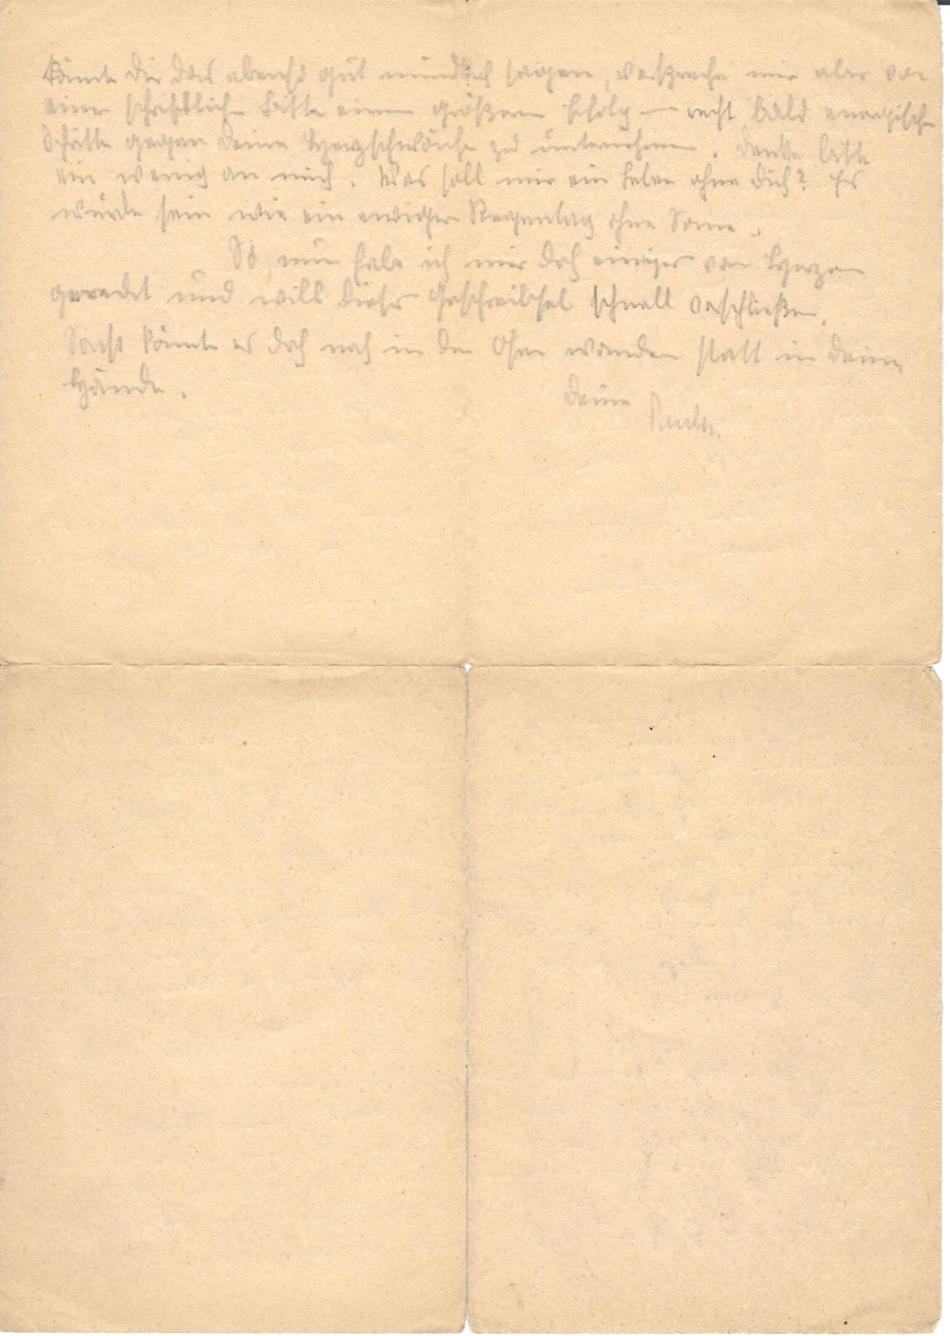 könnte Dir das ebenso gut mündlich sagen, verspreche mir aber von
einer schriftlichen Bitte einen größeren Erfolg — recht bald energische
Schritte gegen Deine Herzschwäche zu unternehmen. Denke bitte
ein wenig an mich. Was soll mir ein Leben ohne Dich? Es
würde sein wie ein ewiger Regentag ohne Sonne.
So, nun habe ich mir doch einiges vom Herzen
geredet und will dieses Geschreibsel schnell verschließen.
Sonst könnte es doch noch in den Ofen wandern statt in Deine
Hände.
Deine